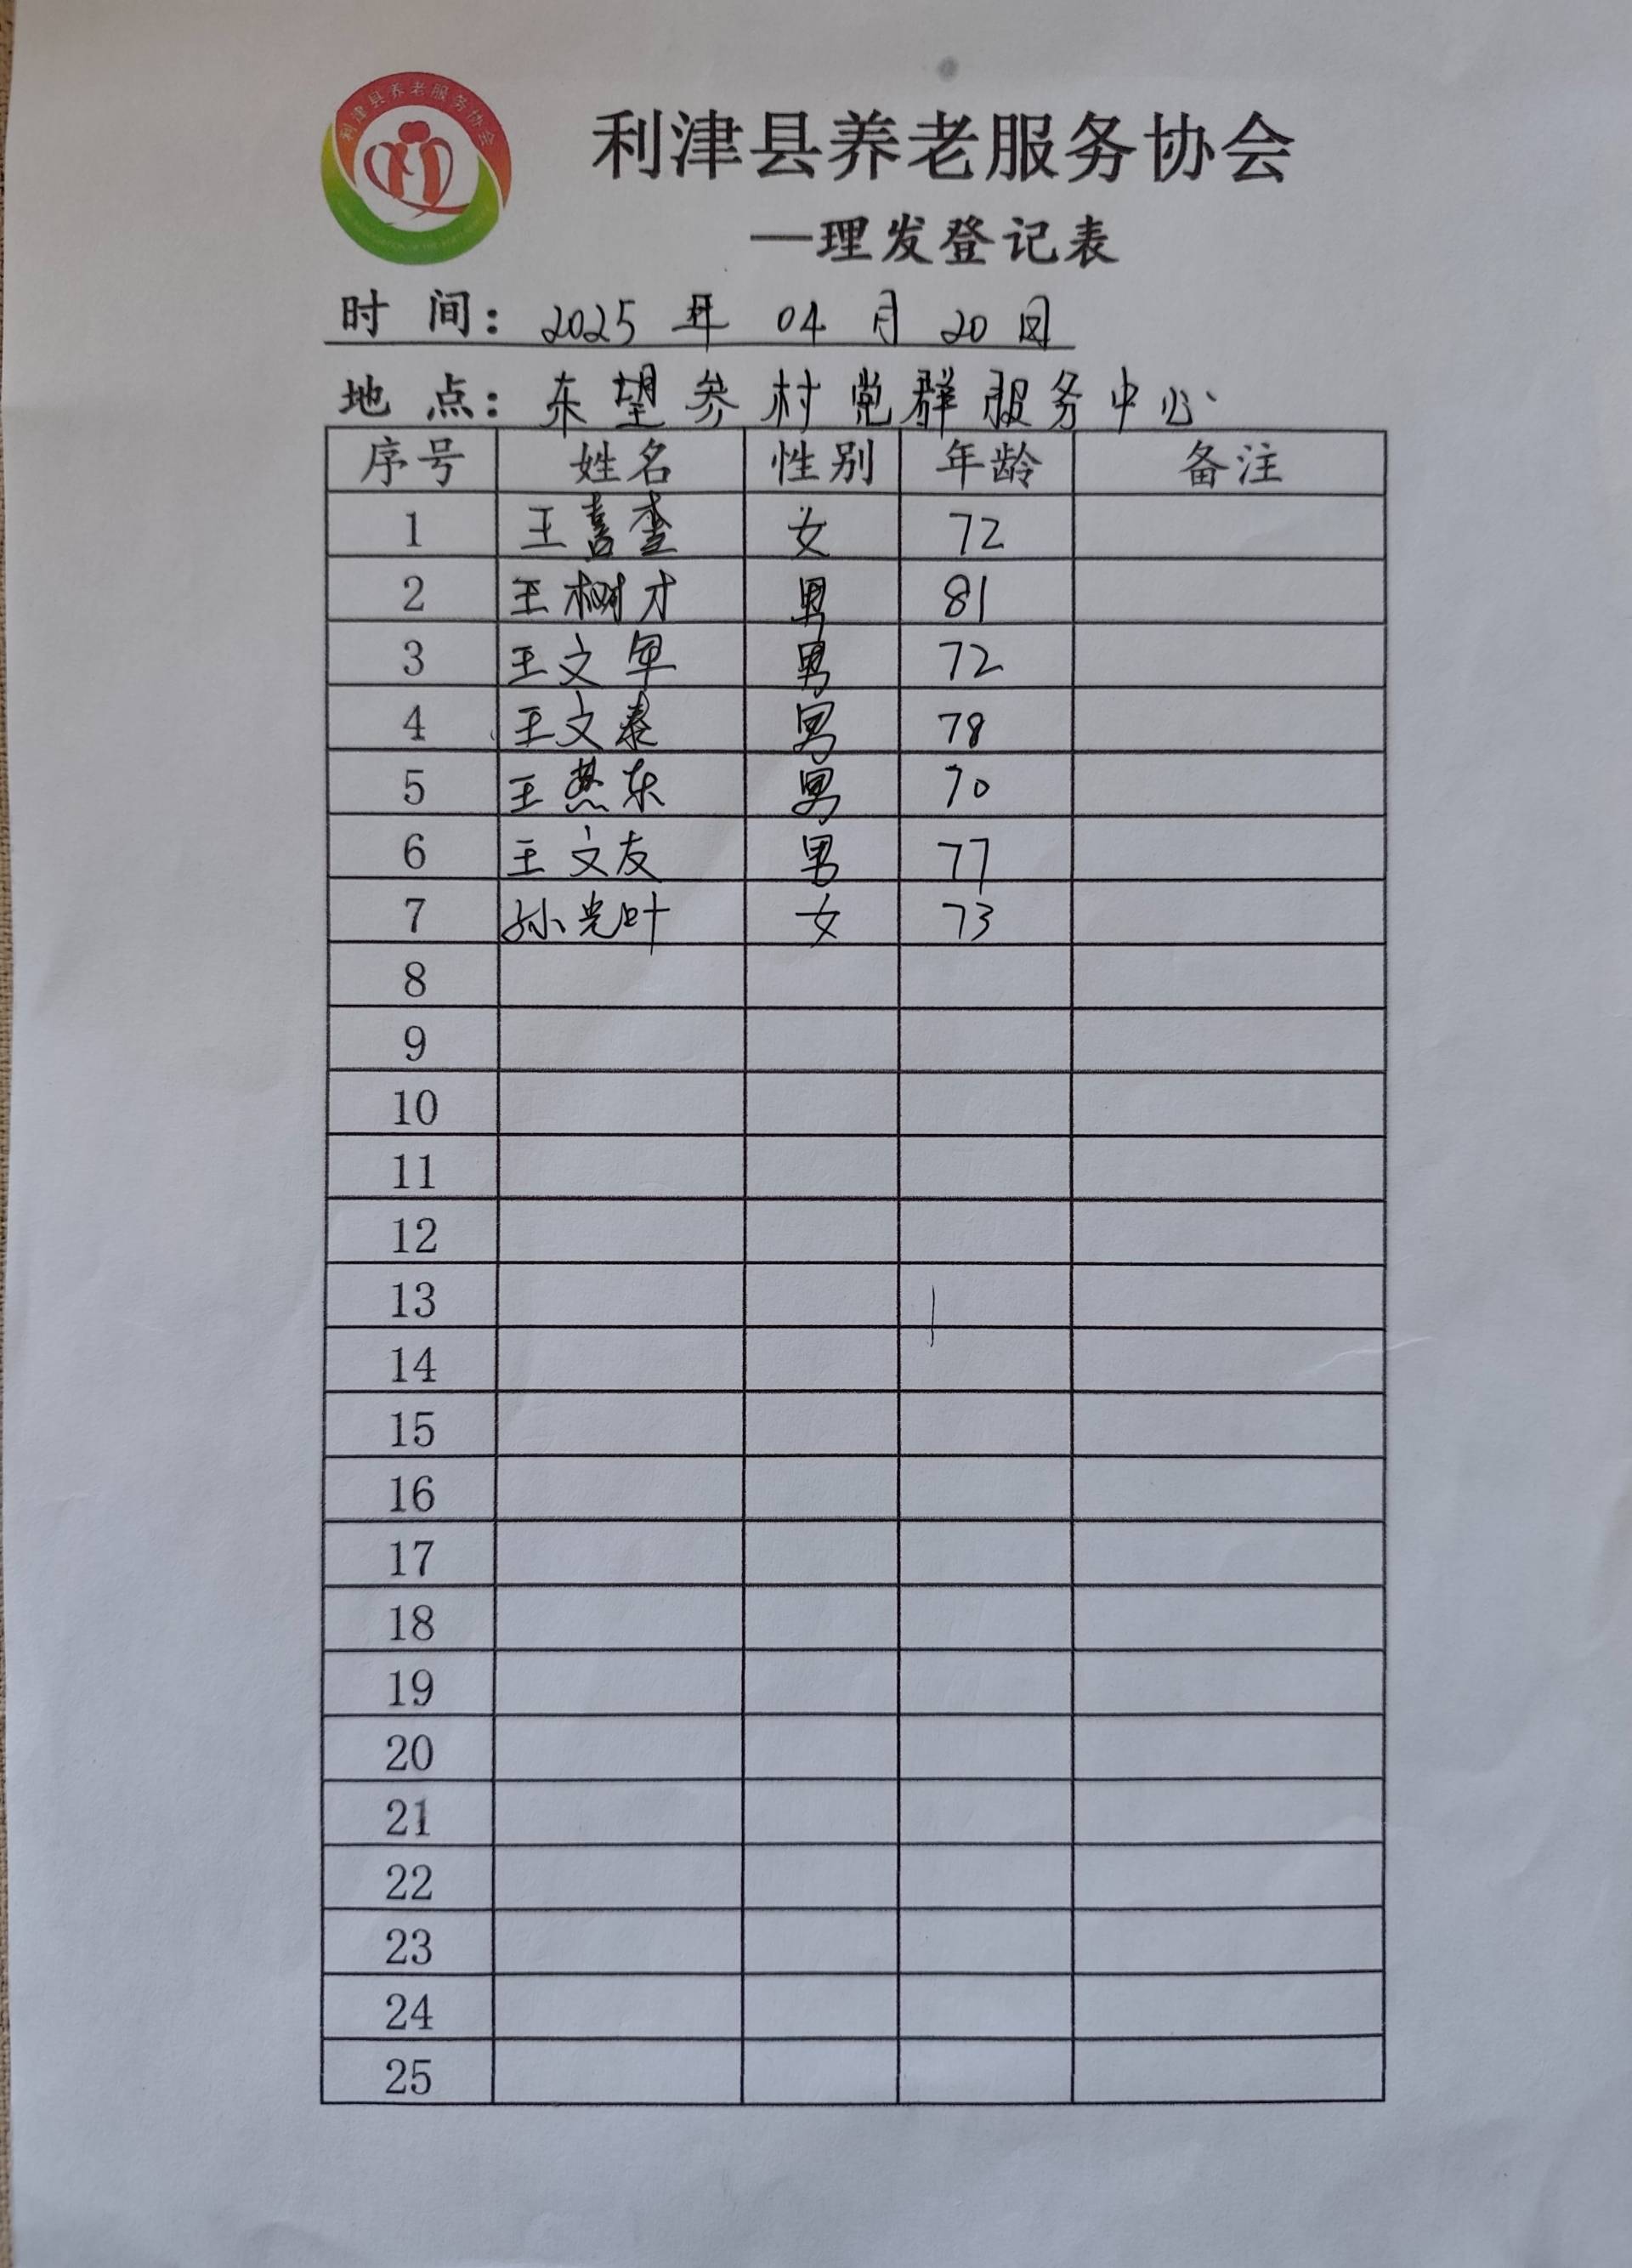 利津县养老服务协会
利津县养老服务协会
—理发登记表
时 间：2025 年 04 月 20 日
地 点：东望参村党群服务中心
序号 姓名 性别 年龄 备注
1 王喜 女 72
2 王树才 男 81
3 王文军 男 72
4 王文泰 男 78
5 王燕东 男 70
6 王文友 男 77
7 孙光叶 女 73
8
9
10
11
12
13
14
15
16
17
18
19
20
21
22
23
24
25